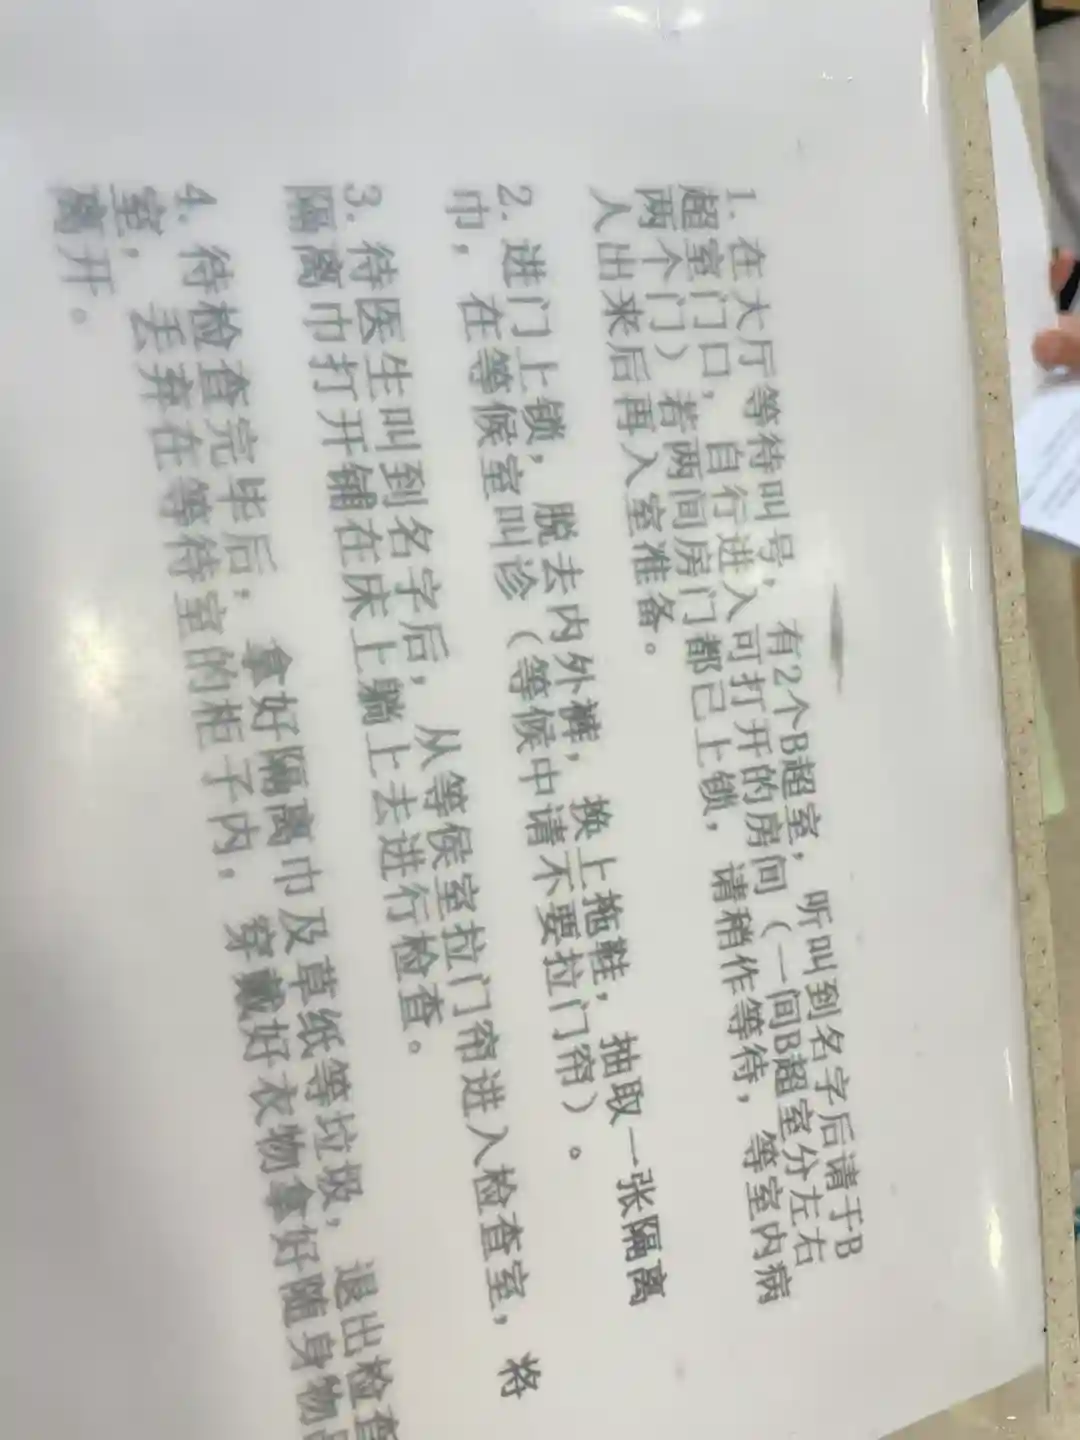 1. 在大厅等待叫号，有2个B超室，听叫到名字后请于B
超室门口，自行进入可打开的房间（一间B超室分左右
两个门）若两间房门都已上锁，请稍作等待，等室内病
人出来后再入室准备。
2. 进门上锁，脱去内外裤，换上拖鞋，抽取一张隔离
巾，在等候室叫诊（等候中请不要拉门帘）。
3. 待医生叫到名字后，从等候室拉门帘进入检查室，将
隔离巾打开铺在床上躺上去进行检查。
4. 待检查完毕后，拿好隔离巾及草纸等垃圾，退出检查
室，丢弃在等待室的柜子内，穿戴好衣物拿好随身物
离开。